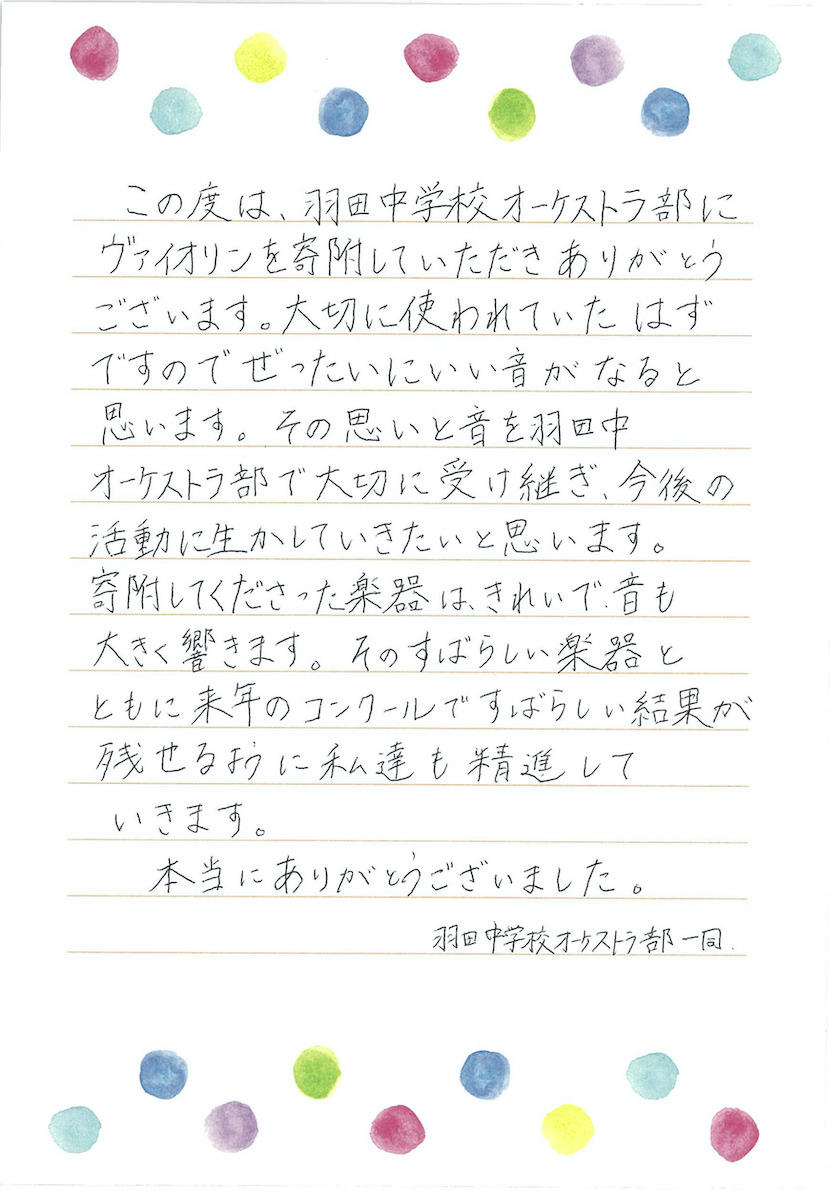 この度は、羽田中学校オーケストラ部に
ヴァイオリンを寄附していただきありがとう
ございます。大切に使われていたはず
ですのでぜったいにいい音がなると
思います。その思いと音を羽田中
オーケストラ部で大切に受け継ぎ、今後の
活動に生かしていきたいと思います。
寄附してくださった楽器は、きれいで、音も
大きく響きます。そのすばらしい楽器と
ともに来年のコンクールですばらしい結果が
残せるように私達も精進して
いきます。
本当にありがとうございました。
羽田中学校オーケストラ部一同.